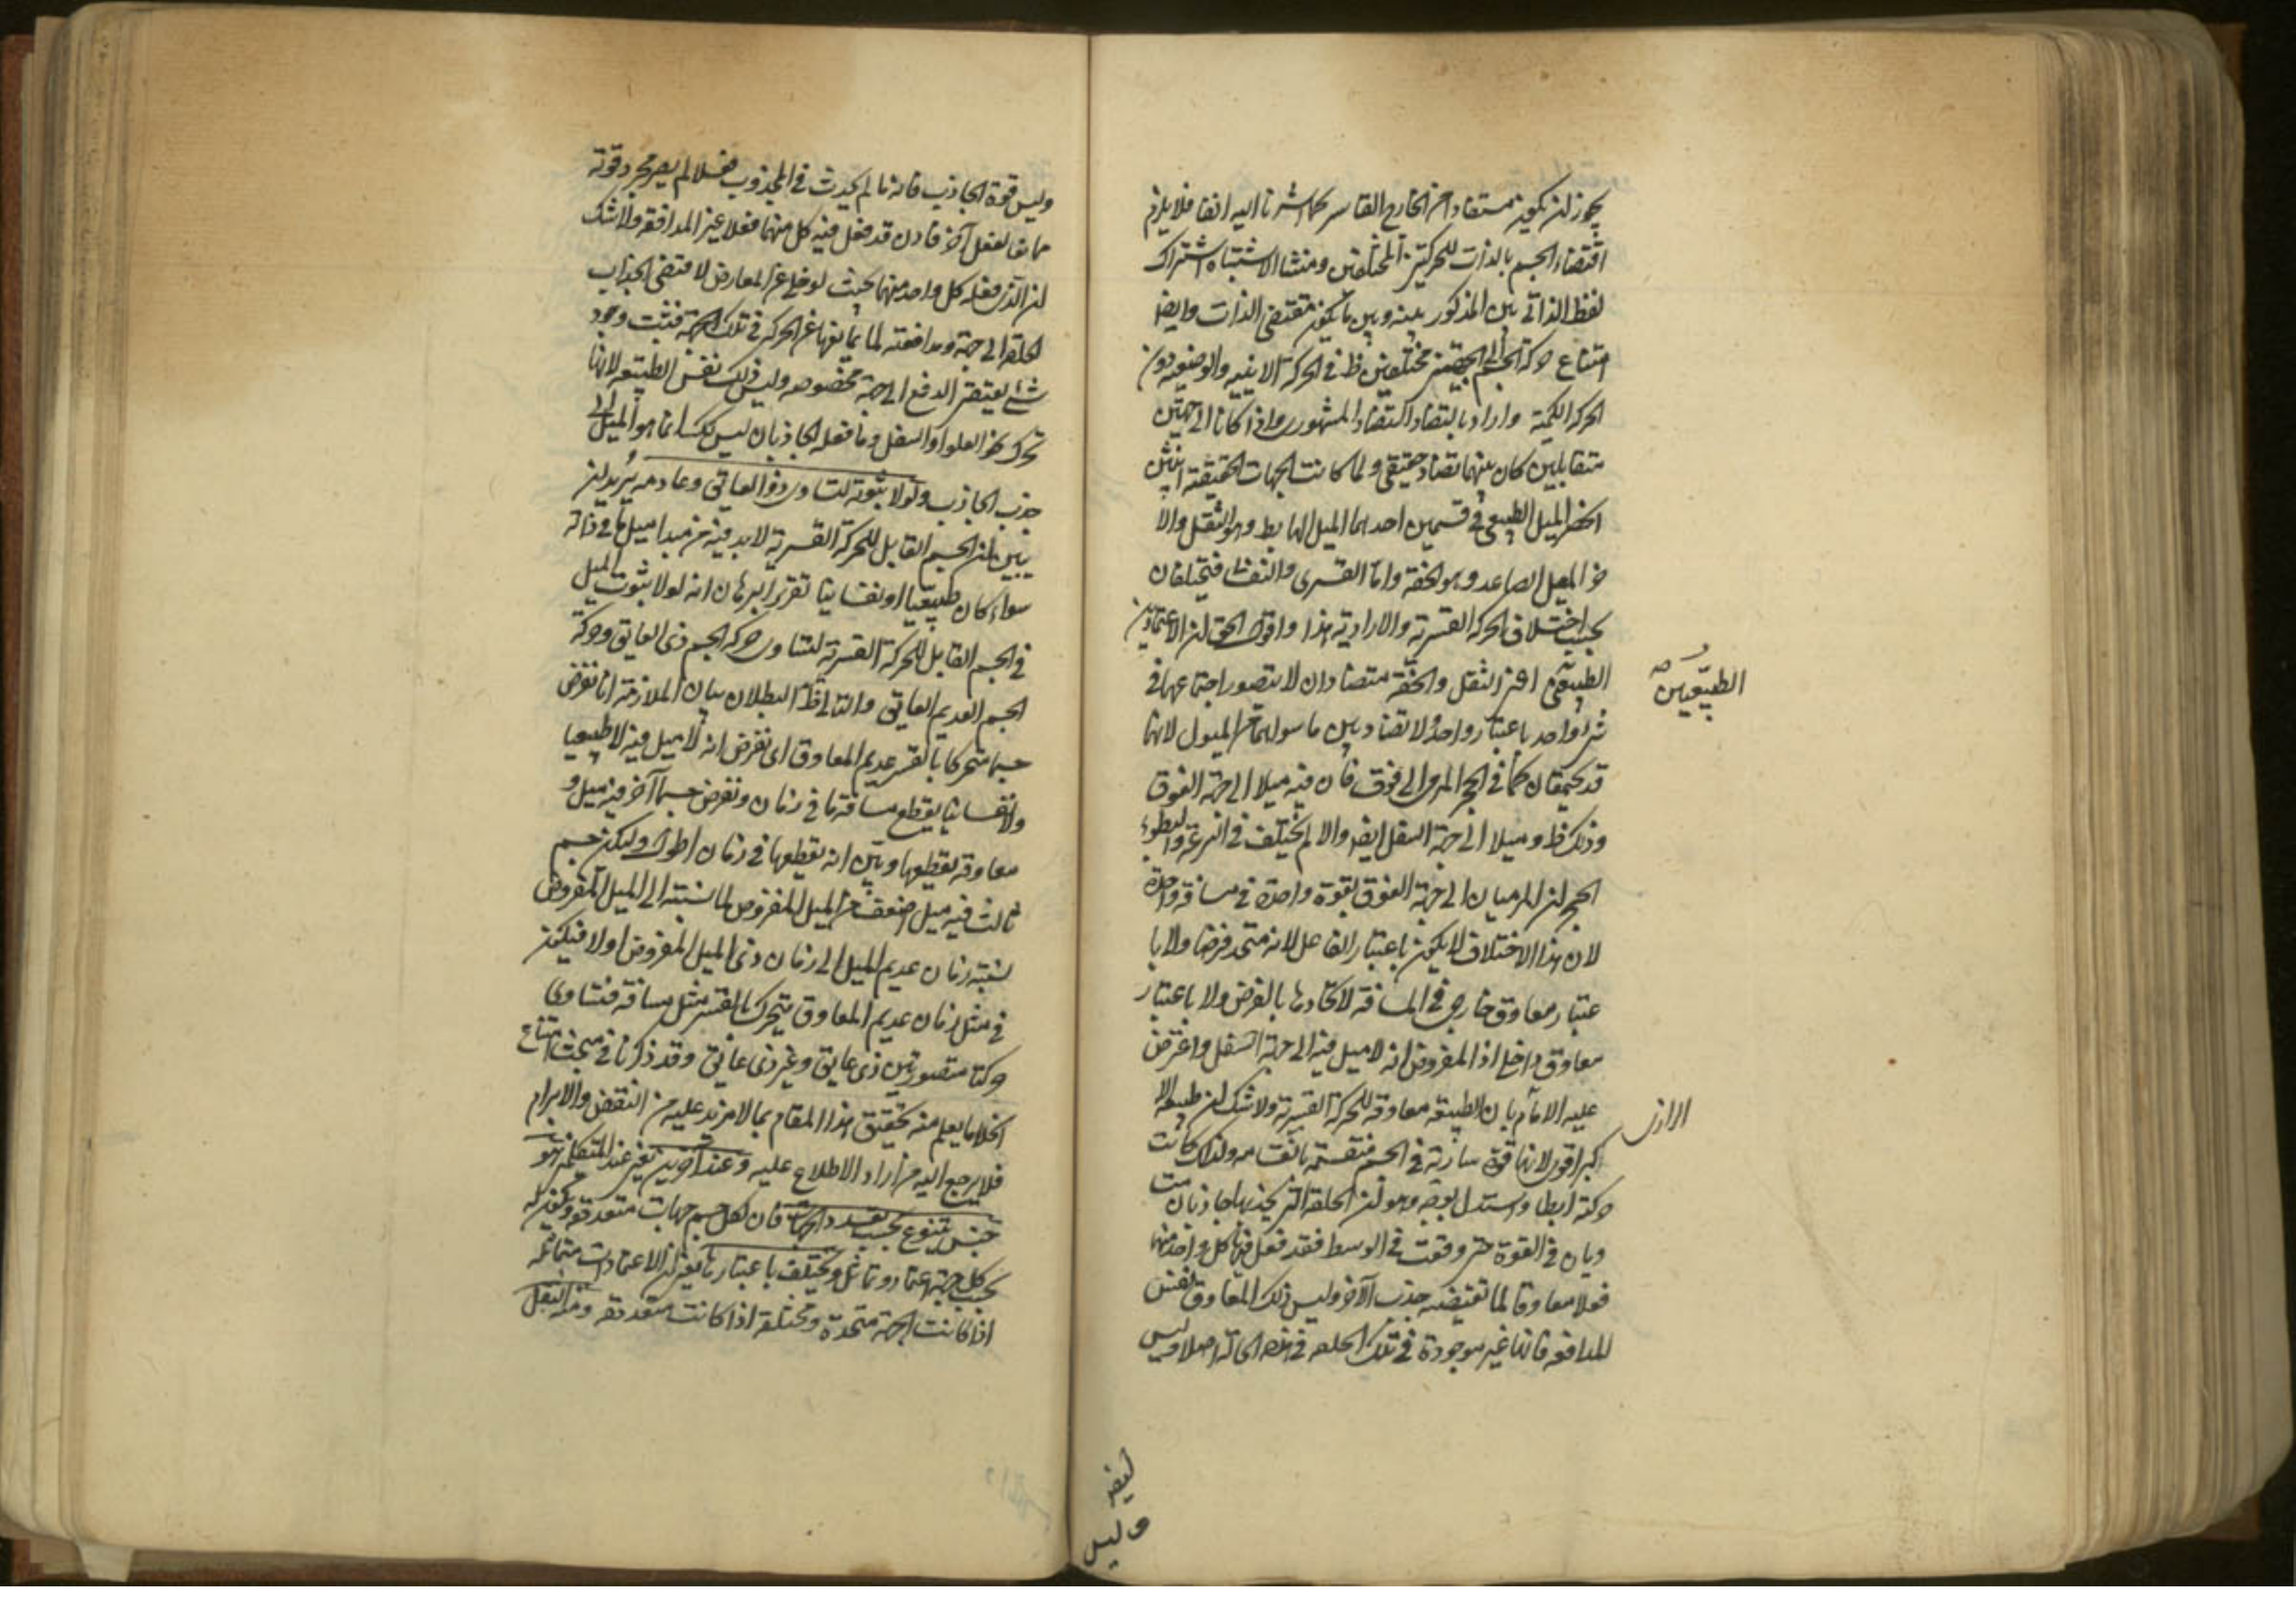 يجوز ان يكون مستفادا من الخارج القاسر كما اشرنا اليه انفا فلا يلزم
اقتضاء الجسم بالذات للحركتين المختلفتين ومنشا الاشتباه اشتراك
لفظ الذاتى بين المذكور بينه وبين ما يكون مقتضى الذات وايضا
امتناع حركة الجسم الى الجهتين مختلفتين ظ فى الحركة الاينيه والوضعيه دون
الحركه الكمية واراد بالتضاد التضاد المشهورى واذا كانا الى جهتين
متقابلين كان بينهما تضاد حقيقى ولما كانت الجهات الحقيقة اثنتين
انحصر الميل الطبيعى فى قسمين احدهما الميل الهابط وهو الثقل والا
خر الميل الصاعد وهو الخفة واما القسرى والنفسا فتختلفان
بحسب اختلاف الحركه القسرية والارادية هذا واقول الحق ان الاعتمادين
الطبيعى اعنى الثقل والخفة متضادان لا يتصور اجتماعهما فى
شى واحد باعتبار واحد ولا تضاد بين ما سواهما من الميول لانهما
قد يجتمعان كما فى الحجر المرمى الى فوق فان فيه ميلا الى جهة الفوق
وذلك ظ وميلا الى جهة السفل ايضا والا لم يختلف فى السرعة والبطوء
الحجران المرميان الى جهة الفوق بقوة واحدة فى مسافة واحدة
لان هذا الاختلاف لا يكون باعتبار الفاعل لانه متحد فرضا ولا با
عتبار معاوق خارجى فى المسافة لاتحادها بالفرض ولا باعتبار
معاوق داخلى اذ المفروض انه لا ميل فيه الى جهة السفل واعترض
عليه الامام بان الطبيعه معاوقه للحركة القسرية ولا شك ان طبيعه الا
كبر اقوى لانها قوة سارية فى الجسم منقسمة بانقسامه ولذلك كانت
حركته ابطا واستدل بعضهم وهو ان الحلقة التى يجذبها جاذبان مت
ويان فى القوة حتى وقفت فى الوسط فقد فعل فيها كل واحد منهما
فعلا معاوقا لما تقتضيه جذب الآخر وليس ذلك المعاوق نفس
المدافعه فانها غير موجودة فى تلك الحلقه فى هذه الحالة اصلا وليس
الطبيعيين صح
الرازى
ايضا
وليس
وليس قوة الجاذب فانه ما لم يحدث فى المجذوب فعلا لم يصر مجرد قوته
مانعا لفعل آخر فاذن قد فعل فيه كل منهما فعلا غير المدافعة ولا شك
ان الذى فعله كل واحد منهما بحيث لو خلى عن المعارض لاقتضى انجذاب
الحلقة الى جهة ومدافعته لما يمانعها عن الحركة فى تلك الجهة فثبت وجود
شئ يقتضى الدفع الى جهة مخصوصه وليس ذلك نفس الطبيعه لانها
تحرك نحو العلو او السفل وما فعله الجاذبان ليس كك انما هو الميل الى
جذب الجاذب ولولا ثبوته لتساوى ذو العائق وعادمه يريد ان
يبين ان الجسم القابل للحركة القسرية لابد فيه من مبدا ميل ما فى ذاته
سواء كان طبيعيا او نفسانيا تقرير البرهان انه لولا ثبوت الميل
فى الجسم القابل للحركة القسرية لتساوى حركة الجسم ذى العايق وحركة
الجسم العديم العايق والتالى ظ البطلان بيان الملازمة انا نفرض
جسما متحركا بالقسر عديم المعاوق اى نفرض انه لا ميل فيه لا طبيعيا
ولا نفسانيا يقطع مسافة ما فى زمان ونفرض جسما آخر فيه ميل و
معاوقه يقطعها وبين انه يقطعها فى زمان اطول وليكن جسم
ثالث فيه ميل اضعف من الميل المفروض لما نسبته الى الميل المفروض
نسبة زمان عديم الميل الى زمان ذى الميل المفروض اولا فيكون
فى مثل زمان عديم المعاوق يتحرك بالقسر مثل مسافته فتساوى
حركتا مقسورتين ذى عايق وغير ذى عائق وقد ذكرنا فى مبحث امتناع
الخلا ما يعلم منه تحقيق هذا المقام بما لا مزيد عليه من النقض والابرام
فليرجع اليه من اراد الاطلاع عليه وعند آخرين يعنى عند المتكلمين هو
جنس يتنوع بحسب تعدد الجهات فان لكل جسم جهات متعددة ويكون له
بحسب كل جهة اعتماد وتماثل ويختلف باعتبارها يعنى ان الاعتمادات متماثله
اذا كانت الجهة متحدة ومختلفة اذا كانت متعددة ومنه الثقل